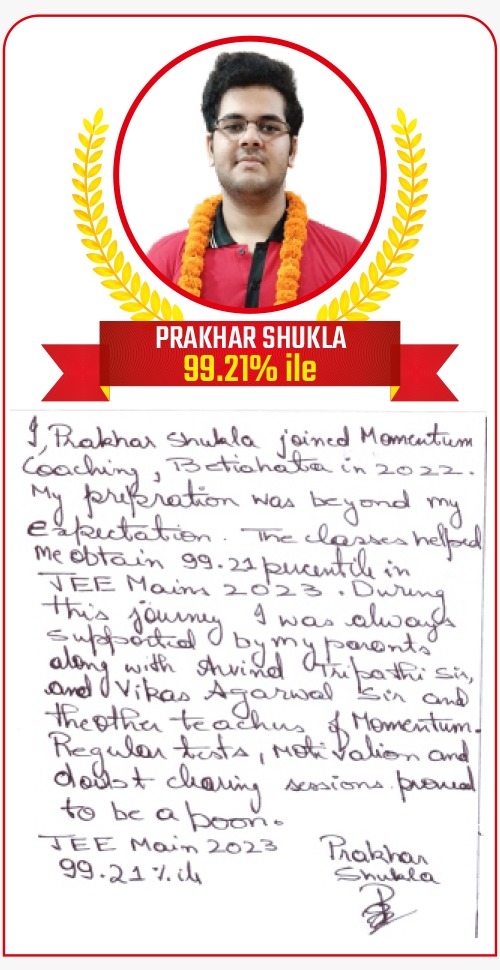 PRAKHAR SHUKLA
99.21% ile
I, Prakhar Shukla joined Momentum
Coaching, Betiahata in 2022.
My prepration was beyond my
expectation. The classes helped
me obtain 99.21 percentile in
JEE Mains 2023. During
this journey I was always
supported by my parents
along with Arvind Tripathi Sir,
and Vikas Agarwal Sir and
the other teachers of Momentum.
Regular tests, motivation and
doubt clearing sessions proved
to be a boon.
JEE Main 2023
99.21 % ile
Prakhar
Shukla